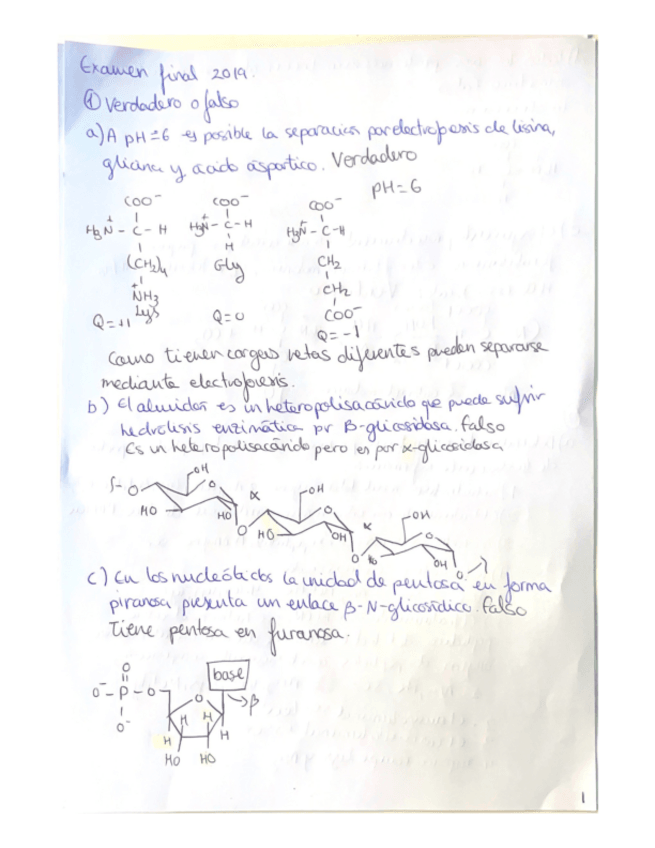 Examen final 2019.
① Verdadero o falso
a) A pH=6 es posible la separación por electroforesis de lisina,
glicina y ácido aspártico. Verdadero
pH=6
COO⁻ COO⁻ COO⁻
H₃N⁺ - C - H H₃N⁺ - C - H H₃N⁺ - C - H
(CH₂)₄ H CH₂
Gly CH₂
⁺NH₃ COO⁻
Lys
Q=+1 Q=0 Q=-1
Como tienen cargas netas diferentes pueden separarse
mediante electroforesis.
b) El almidón es un heteropolisacárido que puede sufrir
hidrólisis enzimática por β-glicosidasa. falso
Es un heteropolisacárido pero es por α-glicosidasa
OH
O O α OH
HO HO O α OH
O HO OH O
O OH O
c) En los nucleótidos la unidad de pentosa en forma
piranosa presenta un enlace β-N-glicosídico. falso
Tiene pentosa en furanosa.
O base
O⁻ - P - O O → β
O⁻ H H
H H
HO HO
1